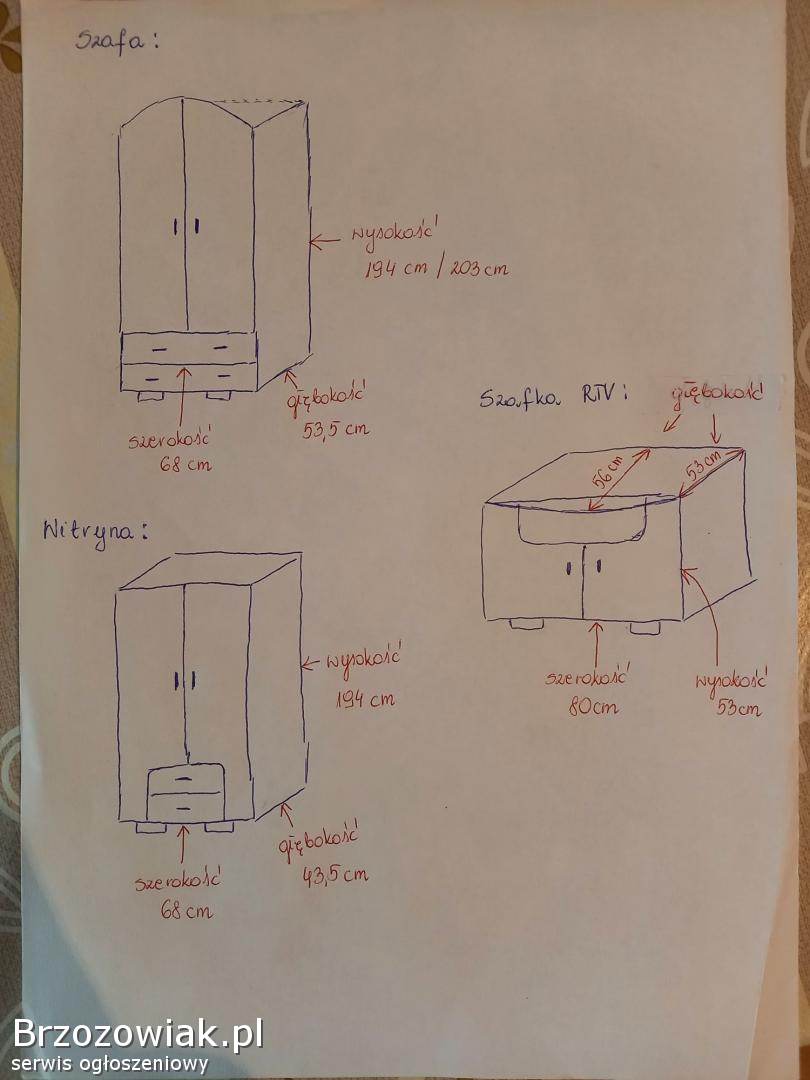 Szafa:
wysokość
194 cm / 203 cm
głębokość
53,5 cm
szerokość
68 cm
Szafka RTV:
głębokość
56 cm
53 cm
szerokość
80 cm
wysokość
53 cm
Witryna:
wysokość
194 cm
głębokość
43,5 cm
szerokość
68 cm
Brzozowiak.pl
serwis ogłoszeniowy